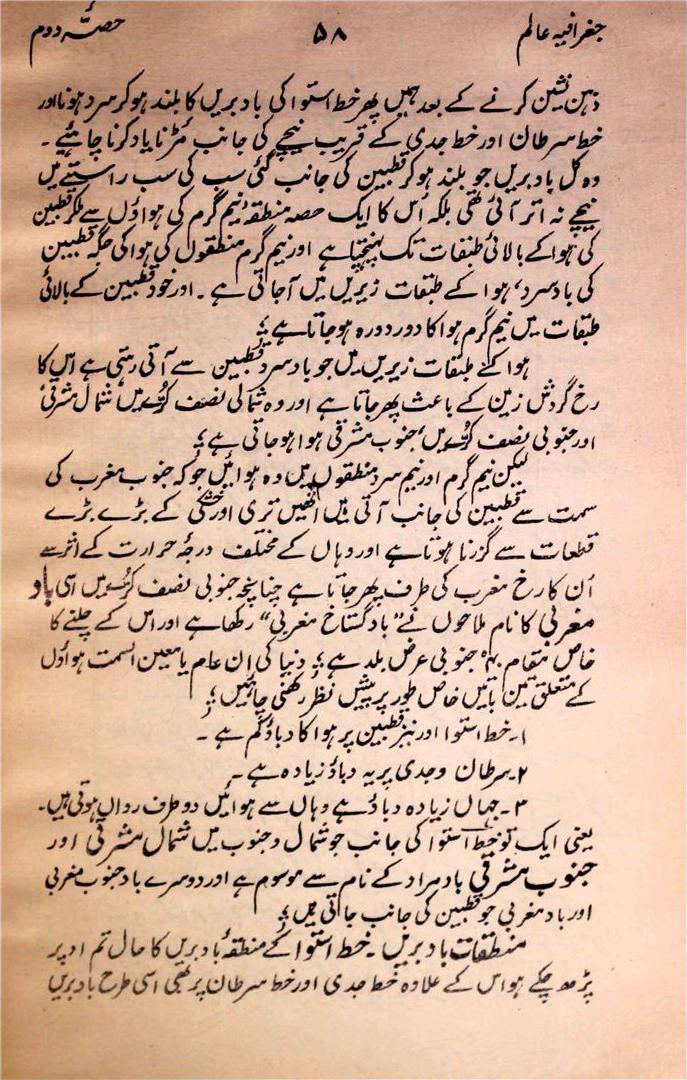 جغرافیہ عالم ۵۸ حصہ دوم
ذہن نشین کرنے کے بعد ہمیں پھر خط استوا کی باد بریں کا بلند ہو کر سرد ہونا اور
خط سرطان اور خط جدی کے قریب نیچے کی جانب مڑنا یاد کرنا چاہئیے۔
وہ کل باد بریں جو بلند ہو کر قطبین کی جانب گئی سب کی سب راستے میں
نیچے نہ اتر آئی تھی بلکہ اُس کا ایک حصہ منطقہ نیم گرم کی ہواؤں سے ملکر قطبین
کی ہوا کے بالائی طبقات تک پہنچتا ہے اور نیم گرم منطقوں کی ہوا کی جگہ قطبین
کی باد سرد، ہوا کے طبقات زیریں میں آجاتی ہے۔ اور خود قطبین کے بالائی
طبقات میں نیم گرم ہوا کا دور دورہ ہو جاتا ہے؛
ہوا کے طبقات زیریں میں جو باد سرد قطبین سے آتی رہتی ہے اُس کا
رخ گردش زمین کے باعث پھر جاتا ہے اور وہ شمالی نصف کُرّے میں، شمال مشرقی،
اور جنوبی نصف کُرّے میں، جنوب مشرقی ہوا ہو جاتی ہے؛
لیکن نیم گرم اور نیم سرد منطقوں میں وہ ہوائیں جو کہ جنوب مغرب کی
سمت سے قطبین کی جانب آتی ہیں انھیں تری اور خشکی کے بڑے بڑے
قطعات سے گزرنا ہوتا ہے اور وہاں کے مختلف درجۂ حرارت کے اثر سے
اُن کا رخ مغرب کی طرف پھر جاتا ہے چنانچہ جنوبی نصف کُرّے میں اسی باد
مغربی کا نام ملاحوں نے "باد گستاخ مغربی" رکھا ہے اور اس کے چلنے کا
خاص مقام جنوبی عرض بلد ہے؛ دنیا کی اِن عام یا معین السمت ہواؤں
کے متعلق تین باتیں خاص طور پر پیش نظر رکھنی چاہئیں؛
۱۔ خط استوا اور نیز قطبین پر ہوا کا دباؤ کم ہے۔
۲۔ سرطان و جدی پر یہ دباؤ زیادہ ہے۔
۳۔ جہاں زیادہ دباؤ ہے وہاں سے ہوائیں دو طرف رواں ہوتی ہیں۔
یعنی ایک تو خط استوا کی جانب جو شمال و جنوب میں شمال مشرقی اور
جنوب مشرقی باد مراد کے نام سے موسوم ہے اور دوسرے باد جنوب مغربی
اور باد مغربی جو قطبین کی جانب جاتی ہیں؛
منطقات باد بریں۔ خط استوا کے منطقۂ باد بریں کا حال تم اوپر
پڑھ چکے ہو اس کے علاوہ خط جدی اور خط سرطان پر بھی اسی طرح باد بریں